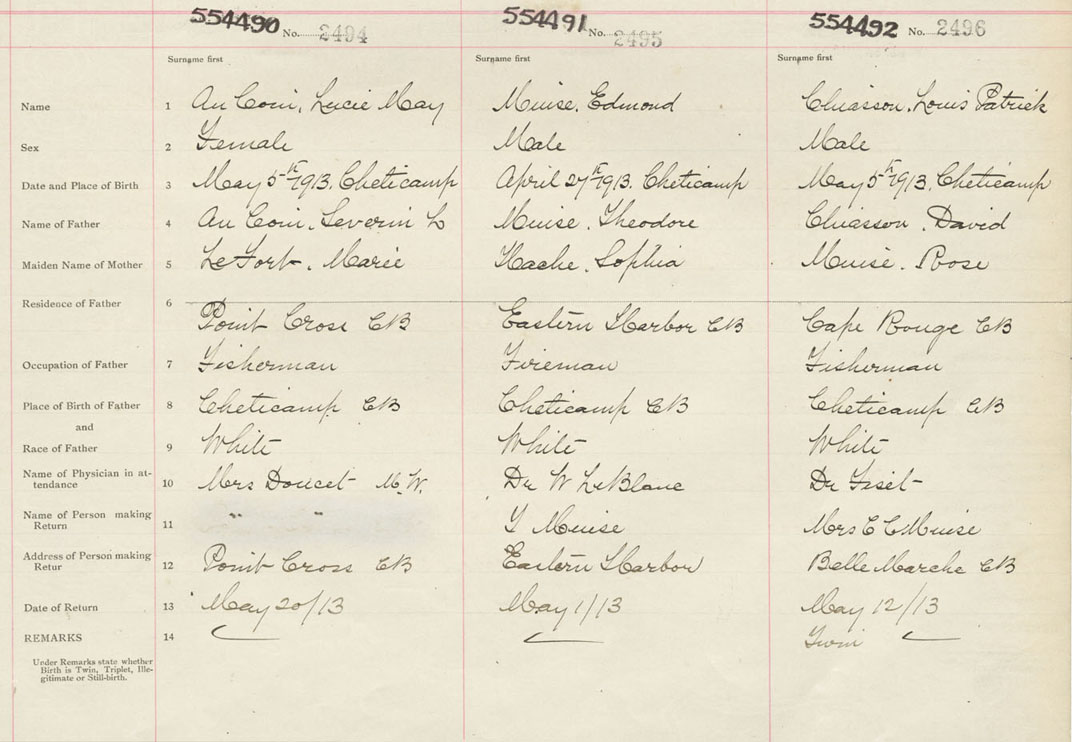 554490 No. 2494 554491 No. 2495 554492 No. 2496
Surname first Surname first Surname first
Name 1 Au Coin, Lucie May Muise, Edmond Chiasson, Louis Patrick
Sex 2 Female Male Male
Date and Place of Birth 3 May 5th 1913. Cheticamp April 27th 1913. Cheticamp May 5th 1913. Cheticamp
Name of Father 4 Au Coin, Severin L Muise, Theodore Chiasson, David
Maiden Name of Mother 5 LeFort, Marie Hache, Sophia Muise, Rose
Residence of Father 6 Point Cross CB Eastern Harbor CB Cape Rouge CB
Occupation of Father 7 Fisherman Fireman Fisherman
Place of Birth of Father 8 Cheticamp CB Cheticamp CB Cheticamp CB
and
Race of Father 9 White White White
Name of Physician in at-
tendance 10 Mrs Doucet M.W. Dr W LeBlanc Dr Fiset
Name of Person making
Return 11 " " T Muise Mrs C C Muise
Address of Person making
Retur 12 Point Cross CB Eastern Harbor Belle Marche CB
Date of Return 13 May 20/13 May 1/13 May 12/13
REMARKS 14 Twin
Under Remarks state whether
Birth is Twin, Triplet, Ille-
gitimate or Still-birth.